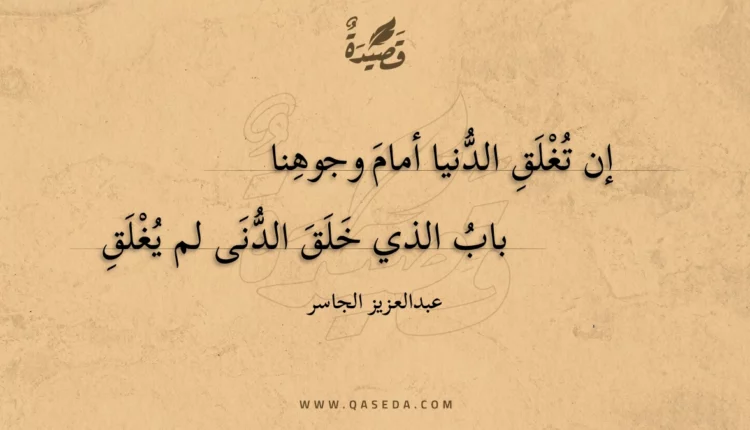 قَصِيْدَةٌ
إن تُغْلَقِ الدُّنيا أمامَ وجوهِنا
بابُ الذي خَلَقَ الدُّنَى لم يُغْلَقِ
عبدالعزيز الجاسر
WWW.QASEDA.COM